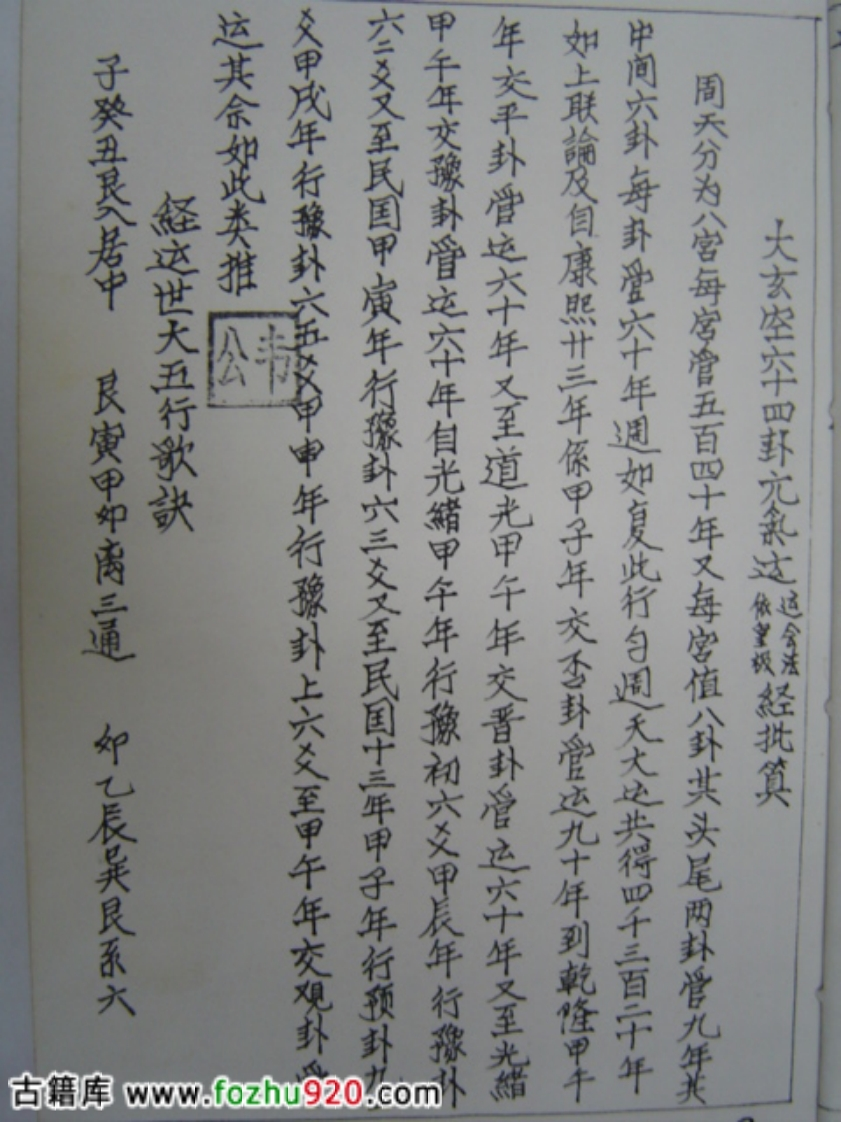 大玄空六十四卦亢氣运 运会法依皇极 経批算
周天分为八宮每宮管五百四十年又每宮值八卦其头尾两卦管九年共
中间六卦每卦管六十年週如复此行匀週天大运共得四千三百二十年
如上联論及自康熙廿三年係甲子年交否卦管运九十年到乾隆甲午
年交平卦管运六十年又至道光甲午年交晋卦管运六十年又至光緒
甲午年交豫卦管运六十年自光緒甲午年行豫初六爻甲辰年行豫卦
六二爻又至民国甲寅年行豫卦六三爻又至民国十三年甲子年行预卦九
爻甲戌年行豫卦六五爻甲申年行豫卦上六爻至甲午年交观卦管
运其余如此类推
韦公
経运世大五行歌訣
子癸丑艮入居中 艮寅甲卯离三通 卯乙辰巽艮系六
古籍库 www.fozhu920.com